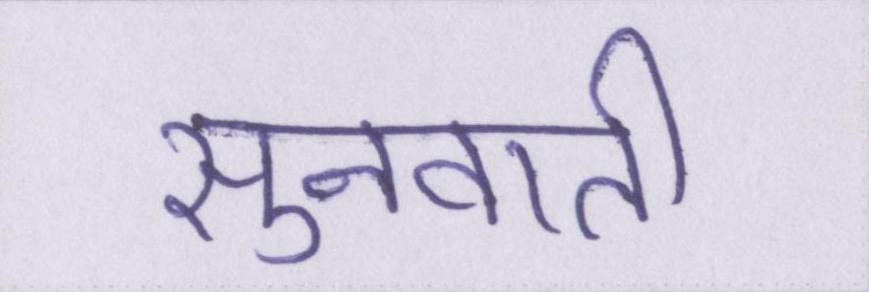 सुनवाती